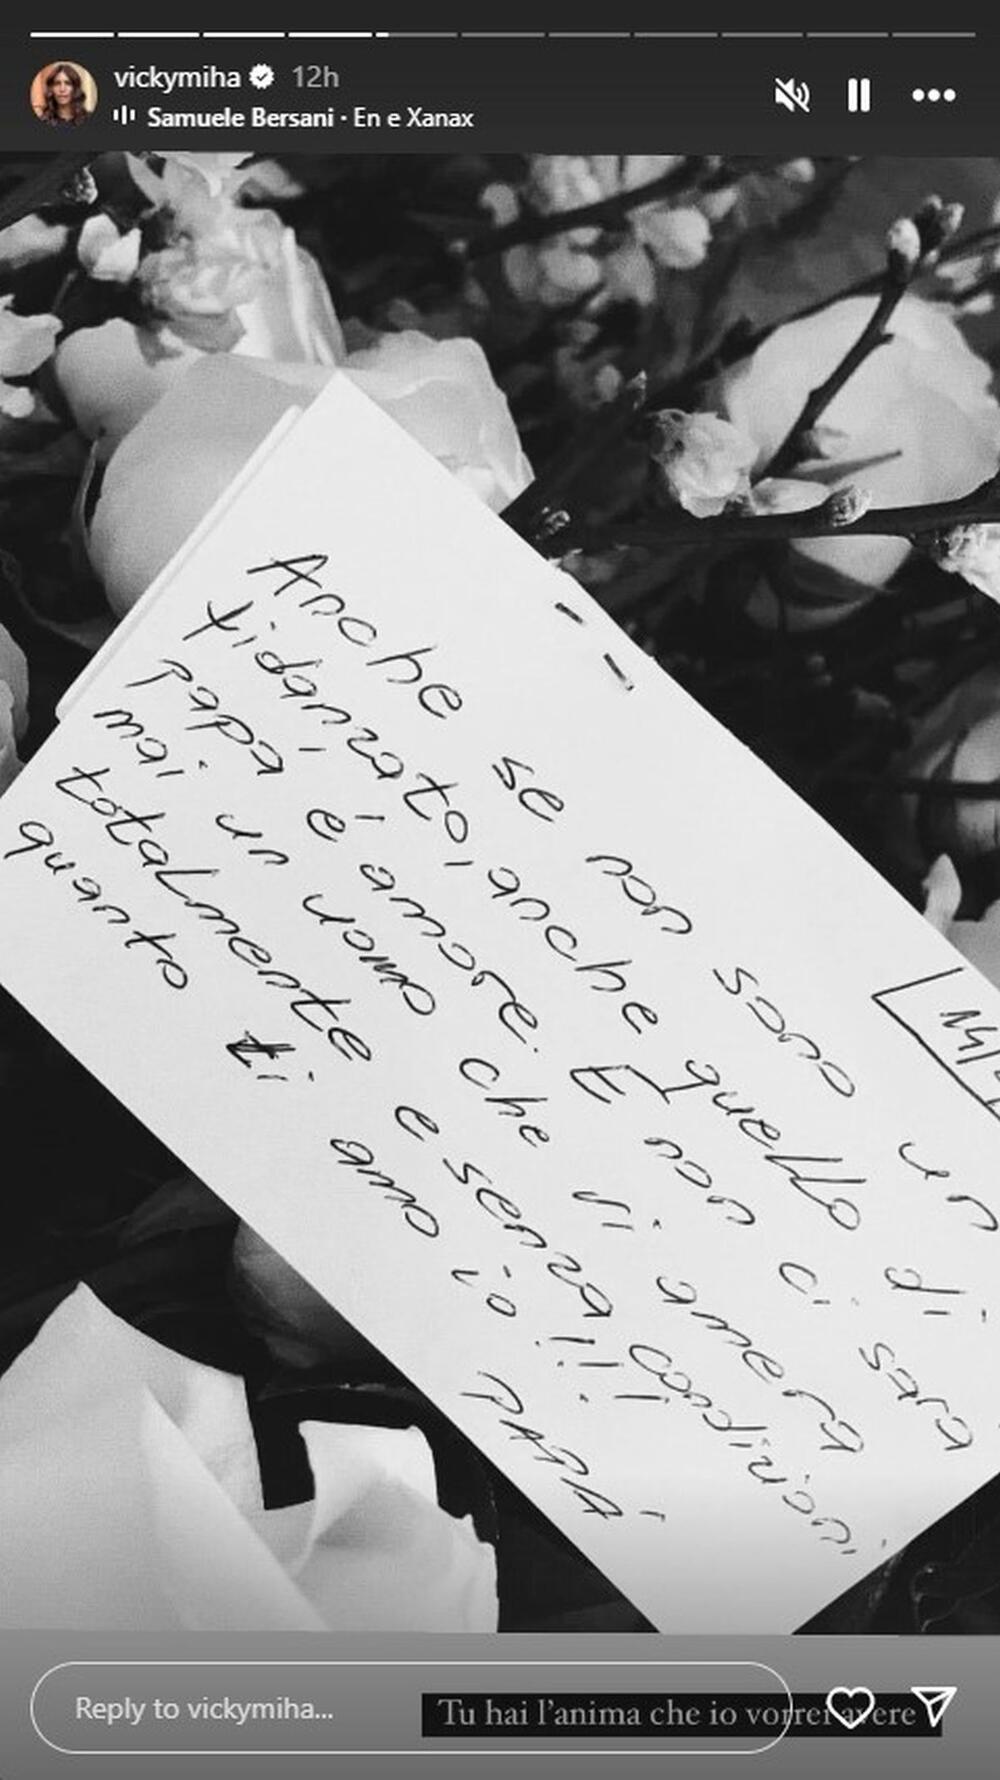 vickymiha 12h
Samuele Bersani · En e Xanax
[14/
Anche se non sono un
fidanzato, anche quello di
papà è amore. E non ci sarà
mai un uomo che ti amerà
totalmente e senza condizioni
quanto ti amo io!!!
PAPÀ
Reply to vickymiha...
Tu hai l'anima che io vorrei avere